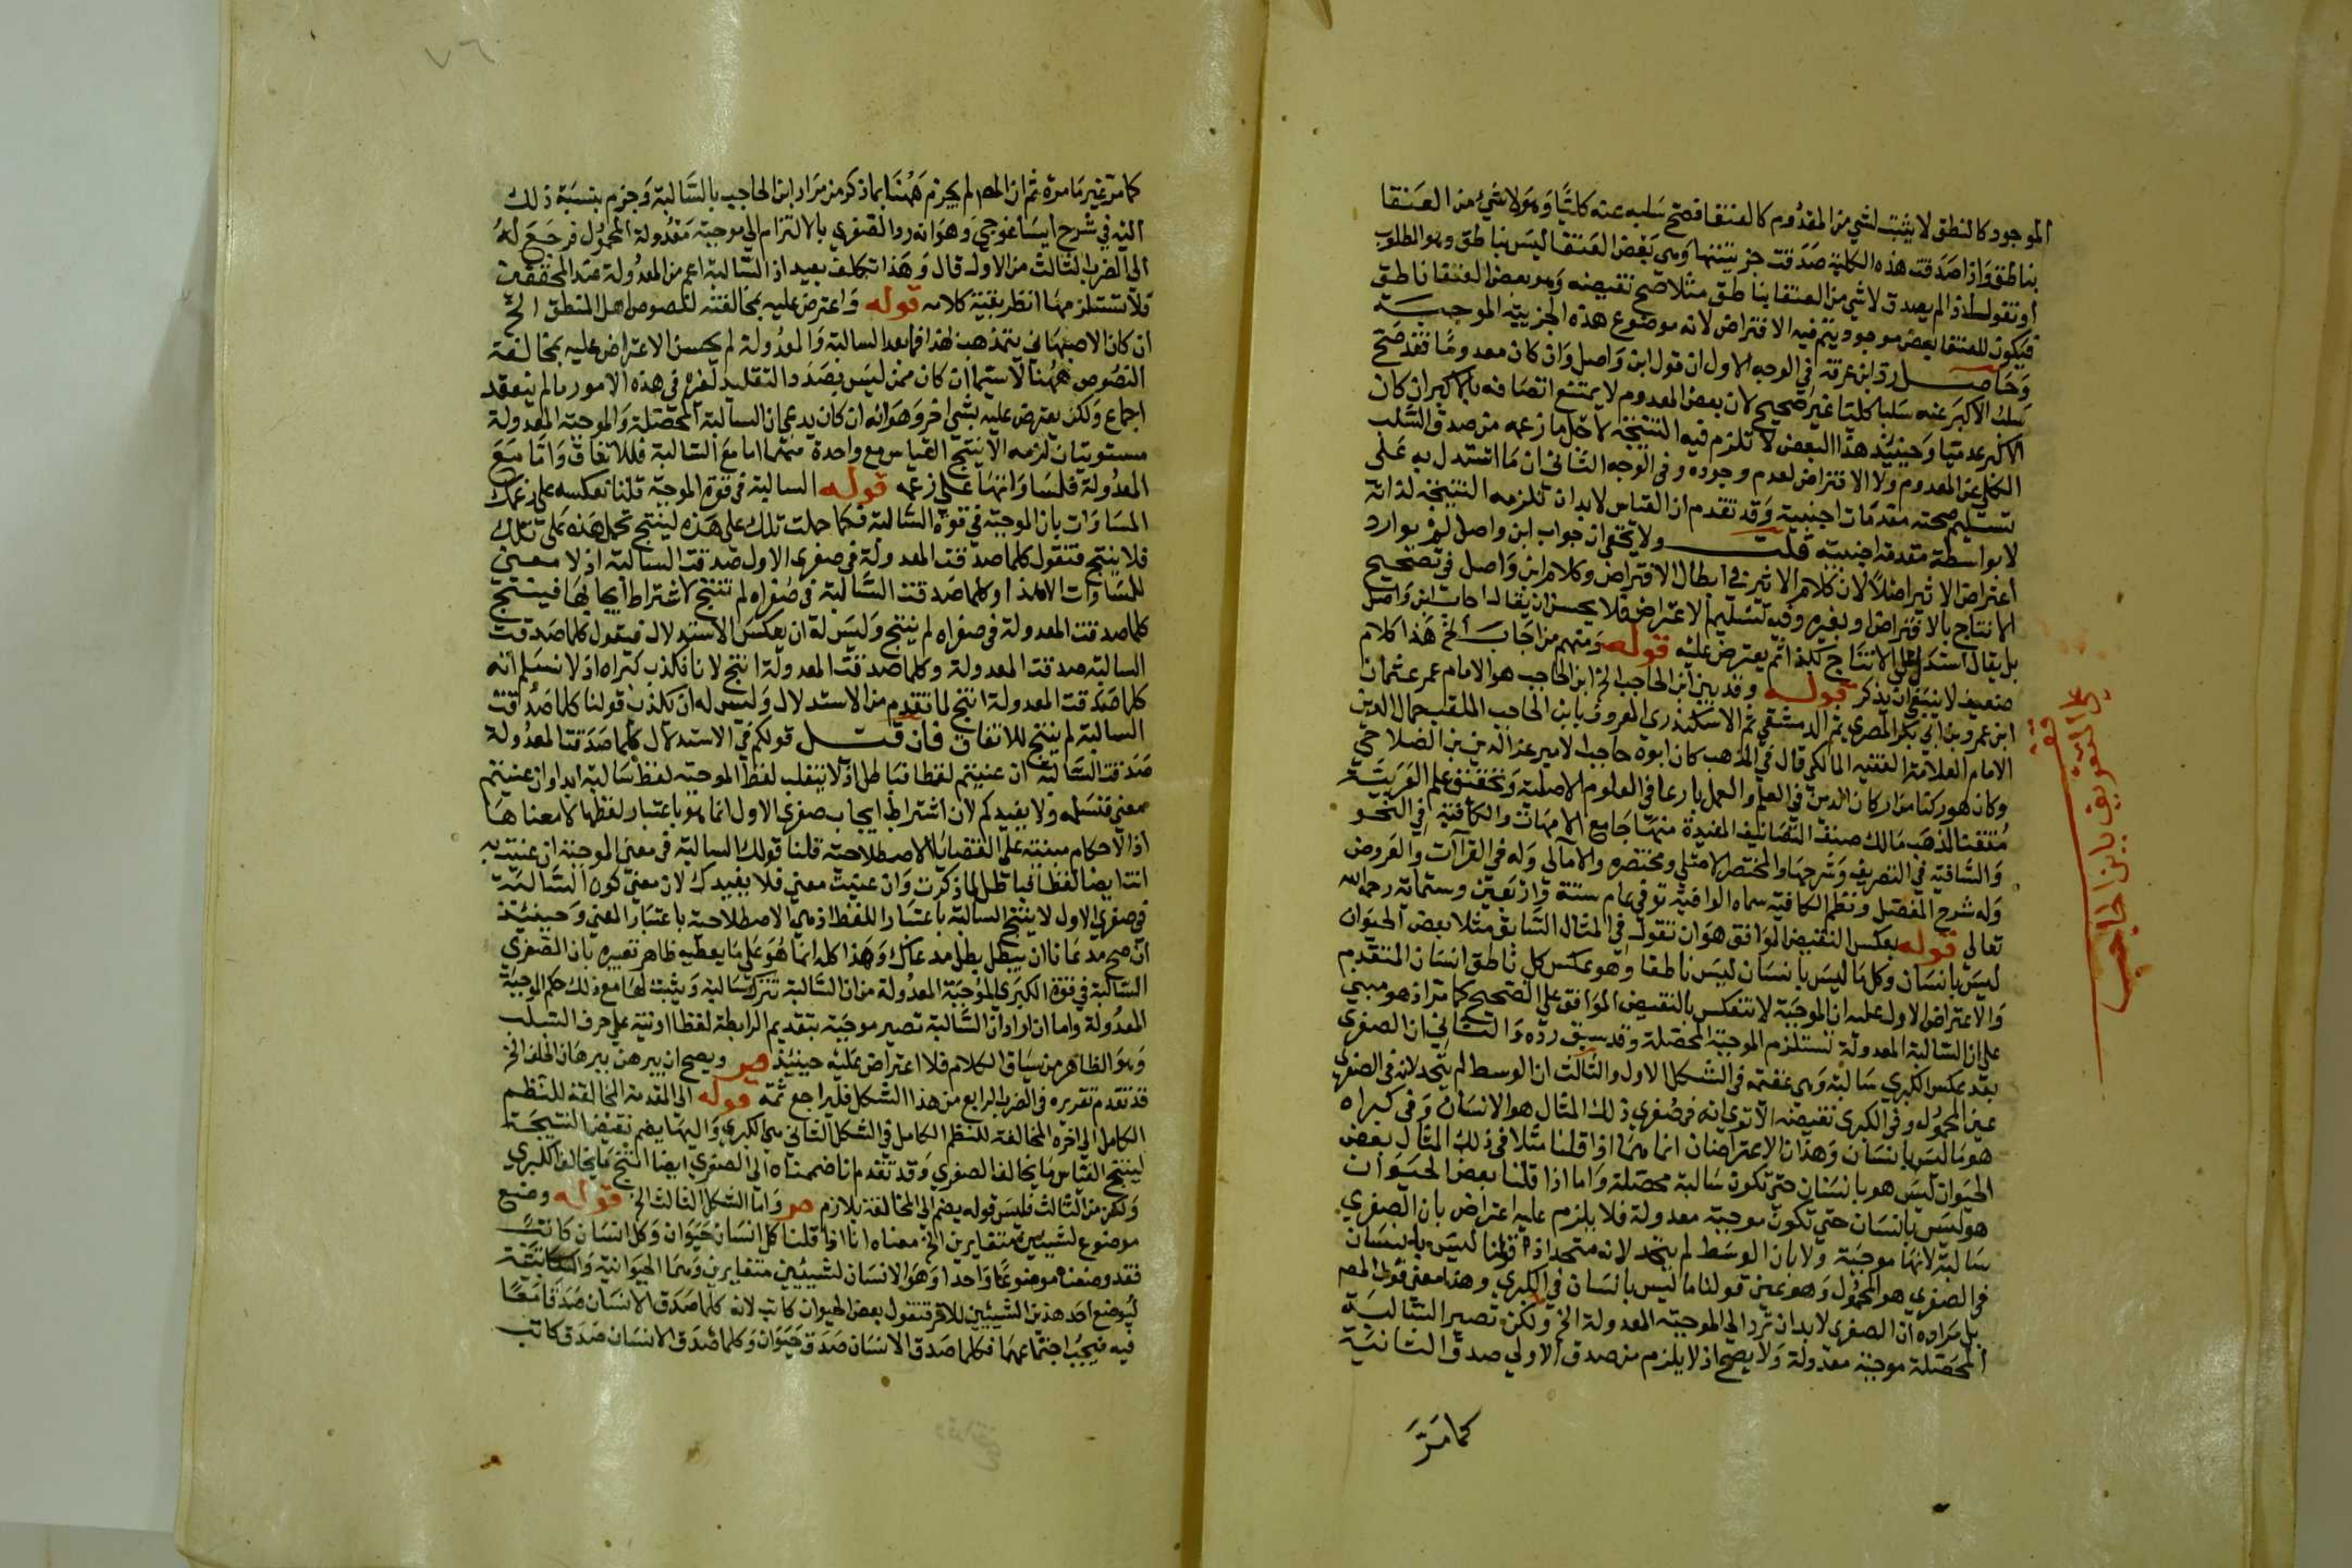 الموجود كالنطق لا يثبت لشي من المعدوم كالعنقا فصح سلبه عنه كليا وهو لا شيء من العنقا
بناطق واذا صدقت هذه الكلية صدقت جزئيتها وهي بعض العنقا ليس بناطق وهو المطلوب
او تقول اذا لم يصدق لا شي من العنقا بناطق مثلا صح نقيضه وهو بعض العنقا ناطق
فيكون للعنقا بعض موجود ويتم فيه الافتراض لانه موضوع هذه الجزيية الموجبة
وحاصل رد ابن عرفة في الوجه الاول ان قول ابن واصل وان كان معدوما فقد صح
سلب الاكبر عنه سلبا كليا غير صحيح لان بعض المعدوم لا يمتنع اتصافه بالاكبر ان كان
الاكبر عدميا وحينيذ هذا البعض لا تلزم فيه النتيجة لاجل ما زعمه من صدق السلب
الكلي عن المعدوم ولا الافتراض لعدم وجوده وفي الوجه الثاني ان ما استدل به على
تسليم صحته مقدمات اجنبية وقد تقدم ان القياس لا بد ان تلزمه النتيجة لذاته
لا بواسطة مقدمة اجنبية قلت ولا يخفى ان جواب ابن واصل لم يوارد
اعتراض الاثير اصلا لان كلام الاثير في ابطال الافتراض وكلام ابن واصل في تصحيح
الانتاج بالافتراض او بغيره وفيه تسليم الاعتراض فلا يحسن ان يقال اجاب ابن واصل
بل يقال استدل على الانتاج بكذا ثم يعترض عليه قوله ومنهم من اجاب الخ هذا كلام
ضعيف لا ينبغي ان يذكر قوله وقد بين ابن الحاجب الخ ابن الحاجب هو الامام عمر عثمان
ابن عمر وبن ابي بكر المصري ثم الدمشقي ثم الاسكندري المعروف بابن الحاجب الملقب جمال الدين
الامام العلامة الفقيه المالكي قال في المذهب كان ابوه حاجبا لامير عز الدين بن الصلاحي
وكان هو ركنا من اركان الدين في العلم والعمل بارعا في العلوم الاصلية وتحقيق علم العربية
متقنا لمذهب مالك صنف التصانيف المفيدة منها جامع الامهات والكافية في النحو
والشافية في التصريف وشرحها والمختصر الاصلي ومختصره والامالي وله في القراآت والعروض
وله شرح المفصل ونظم الكافية سماه الوافية توفي عام ستة واربعين وستماية رحمه الله
تعالى قوله بعكس النقيض الموافق هو ان تقول في المثال السابق مثلا بعض الحيوان
ليس بانسان وكل ما ليس بانسان ليس ناطقا وهو عكس كل ناطق انسان المتقدم
والاعتراض الاول عليه ان الموجبة لا تنعكس بالنقيض الموافق على الصحيح كما مر اذ هو مبني
على ان السالبة المعدولة تستلزم الموجبة المحصلة وقد سبق رده والثاني ان الصغرى
بعد عكس الكبرى سالبة وهي عقيمة في الشكل الاول والثالث ان الوسط لم يتحد لانه في الصغرى
عين المحمول وفي الكبرى نقيضه الا ترى انه في صغرى ذلك المثال هو الانسان وفي كبراه
هو ما ليس بانسان وهذان الاعتراضان انما هما اذا قلنا مثلا في ذلك المثال بعض
الحيوان ليس هو بانسان حتى تكون سالبة محصلة واما اذا قلنا بعض الحيوان
هو ليس بانسان حتى تكون موجبة معدولة فلا يلزم عليه اعتراض بان الصغرى
سالبة لانها موجبة ولا بان الوسط لم يتحد لانه متحد اذ قولنا ليس بانسان
في الصغرى هو المحمول وهو عين قولنا ما ليس بانسان في الكبرى وهذا معنى قول المصـ
بل مراده ان الصغرى لا بد ان ترد الى الموجبة المعدولة الخ ولكن تصير السالبة
المحصلة موجبة معدولة ولا يصح اذ لا يلزم من صدق الاولى صدق الثانية
كما مَرَّ
قف
على التعريف بابن الحاجب
٧٦
كما مر غير ما مرة ثم ان المصـ لم يجزم ههنا بما ذكر من مراد ابن الحاجب بالسالبة وجزم بنسبة ذلك
اليه في شرح ايساغوجي وهو انه رد الصغرى بالالتزام الى موجبة معدولة المحمول فرجع له
الى الضرب الثالث من الاول قال وهذا تكلف بعيد اذ السالبة اعم من المعدولة عند المحققين
فلا تستلزمها انظر بقية كلامه قوله واعترض عليه بمخالفته لنصوص اهل المنطق الخ
ان كان الاصبهاني يتمذهب لهذا فما بعد السالبة والمعدولة لم يحسن الاعتراض عليه بمخالفة
النصوص ههنا لا سيما ان كان ممن ليس بصدد التقليد لغيره في هذه الامور ما لم ينعقد
اجماع ولكن يعترض عليه بشي اخر وهو انه ان كان يدعي ان السالبة المحصلة والموجبة المعدولة
مستويتان لزمه الا ينتج القياس مع واحدة منهما اما مع السالبة فللاتفاق واما مع
المعدولة فلمساواتها على زعمه قوله السالبة في قوة الموجبة قلنا نعكسه على زعمك
المساوات بان الموجبة في قوة السالبة فكما حملت تلك على هذه لينتج تحمل هذه على تلك
فلا ينتج فتقول كلما صدقت المعدولة في صغرى الاول صدقت السالبة اذ لا معنى
للمساوات الا هذا وكلما صدقت السالبة في صغراه لم تنتج لاشتراط ايجابها فينتج
كلما صدقت المعدولة في صغراه لم ينتج وليس له ان يعكس الاستدلال فيقول كلما صدقت
السالبة صدقت المعدولة وكلما صدقت المعدولة انتج لانا نكذب كبراه اذ لا نسلم انه
كلما صدقت المعدولة انتج لما تقدم من الاستدلال وليس له ان يكذب قولنا كلما صدقت
السالبة لم ينتج للاتفاق فان قيل قولكم في الاستدلال كلما صدقت المعدولة
صدقت السالبة ان عنيتم لفظا فباطل اذ لا ينقلب لفظ الموجبة لفظ سالبة ابدا وان عنيتم
معنى فنسلمه ولا يفيدكم لان اشتراط ايجاب صغرى الاول انما هو باعتبار لفظها لا معناها
اذ الاحكام مبنية على القضايا الاصطلاحية قلنا قولك السالبة في معنى الموجبة ان عنيت به
انت ايضا لفظا فباطل لما ذكرت وان عنيت معنى فلا يفيدك لان معنى كون السالبة
في صغرى الاول لا ينتج السالبة باعتبار اللفظ اذ هي الاصطلاحية باعتبار المعنى وحينيذ
ان صح مدعانا ان يبطل بطل مدعاك وهذا كله انما هو على ما يعطيه ظاهر تعبيره بان الصغرى
السالبة في قوة الكبرى الموجبة المعدولة من ان السالبة تترك سالبة ويثبت لها مع ذلك حكم الموجبة
المعدولة واما ان اراد ان السالبة تصير موجبة بتقديم الرابطة لفظا او نية على حرف السلب
وهو الظاهر من سياق الكلام فلا اعتراض عليه حينيذ صـ ويصح ان يبرهن ببرهان الخلف الخ
قد تقدم تقريره في الضرب الرابع من هذا الشكل فليراجع ثمة قوله الى المقدمة المخالفة للنظم
الكامل الى اخره المخالفة للنظم الكامل في الشكل الثاني هي الكبرى واليها يضم نقيض النتيجة
لينتج القياس ما يخالف الصغرى وقد تقدم انا ضممناه الى الصغرى ايضا انتج ما يخالف الكبرى
ولكن من الثالث فليس قوله يضم الى المخالفة بلازم صـ واما الشكل الثالث الخ قوله وضع
موضوع لشييين متغايرين الخ معناه انا اذا قلنا كل انسان حيوان وكل انسان كاتب
فقد وضعنا موضوعا واحدا وهو الانسان لشييين متغايرين وهما الحيوانية والكاتبية
ليوضع احد هذين الشييين للاخر فتقول بعض الحيوان كاتب لانه كلما صدق الانسان صدقا معا
فيه فيجب اجتماعهما فكلما صدق الانسان صدق حيوان وكلما صدق الانسان صدق كاتب